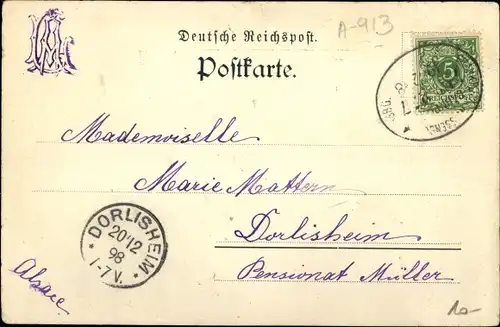 A-913
Deutsche Reichspost.
Postkarte.
5
Mademoiselle
Marie Mattern
Dorlisheim
Pensionat Müller
DORLISHEIM
20/12
98
1-7 V.
Alsace
10-